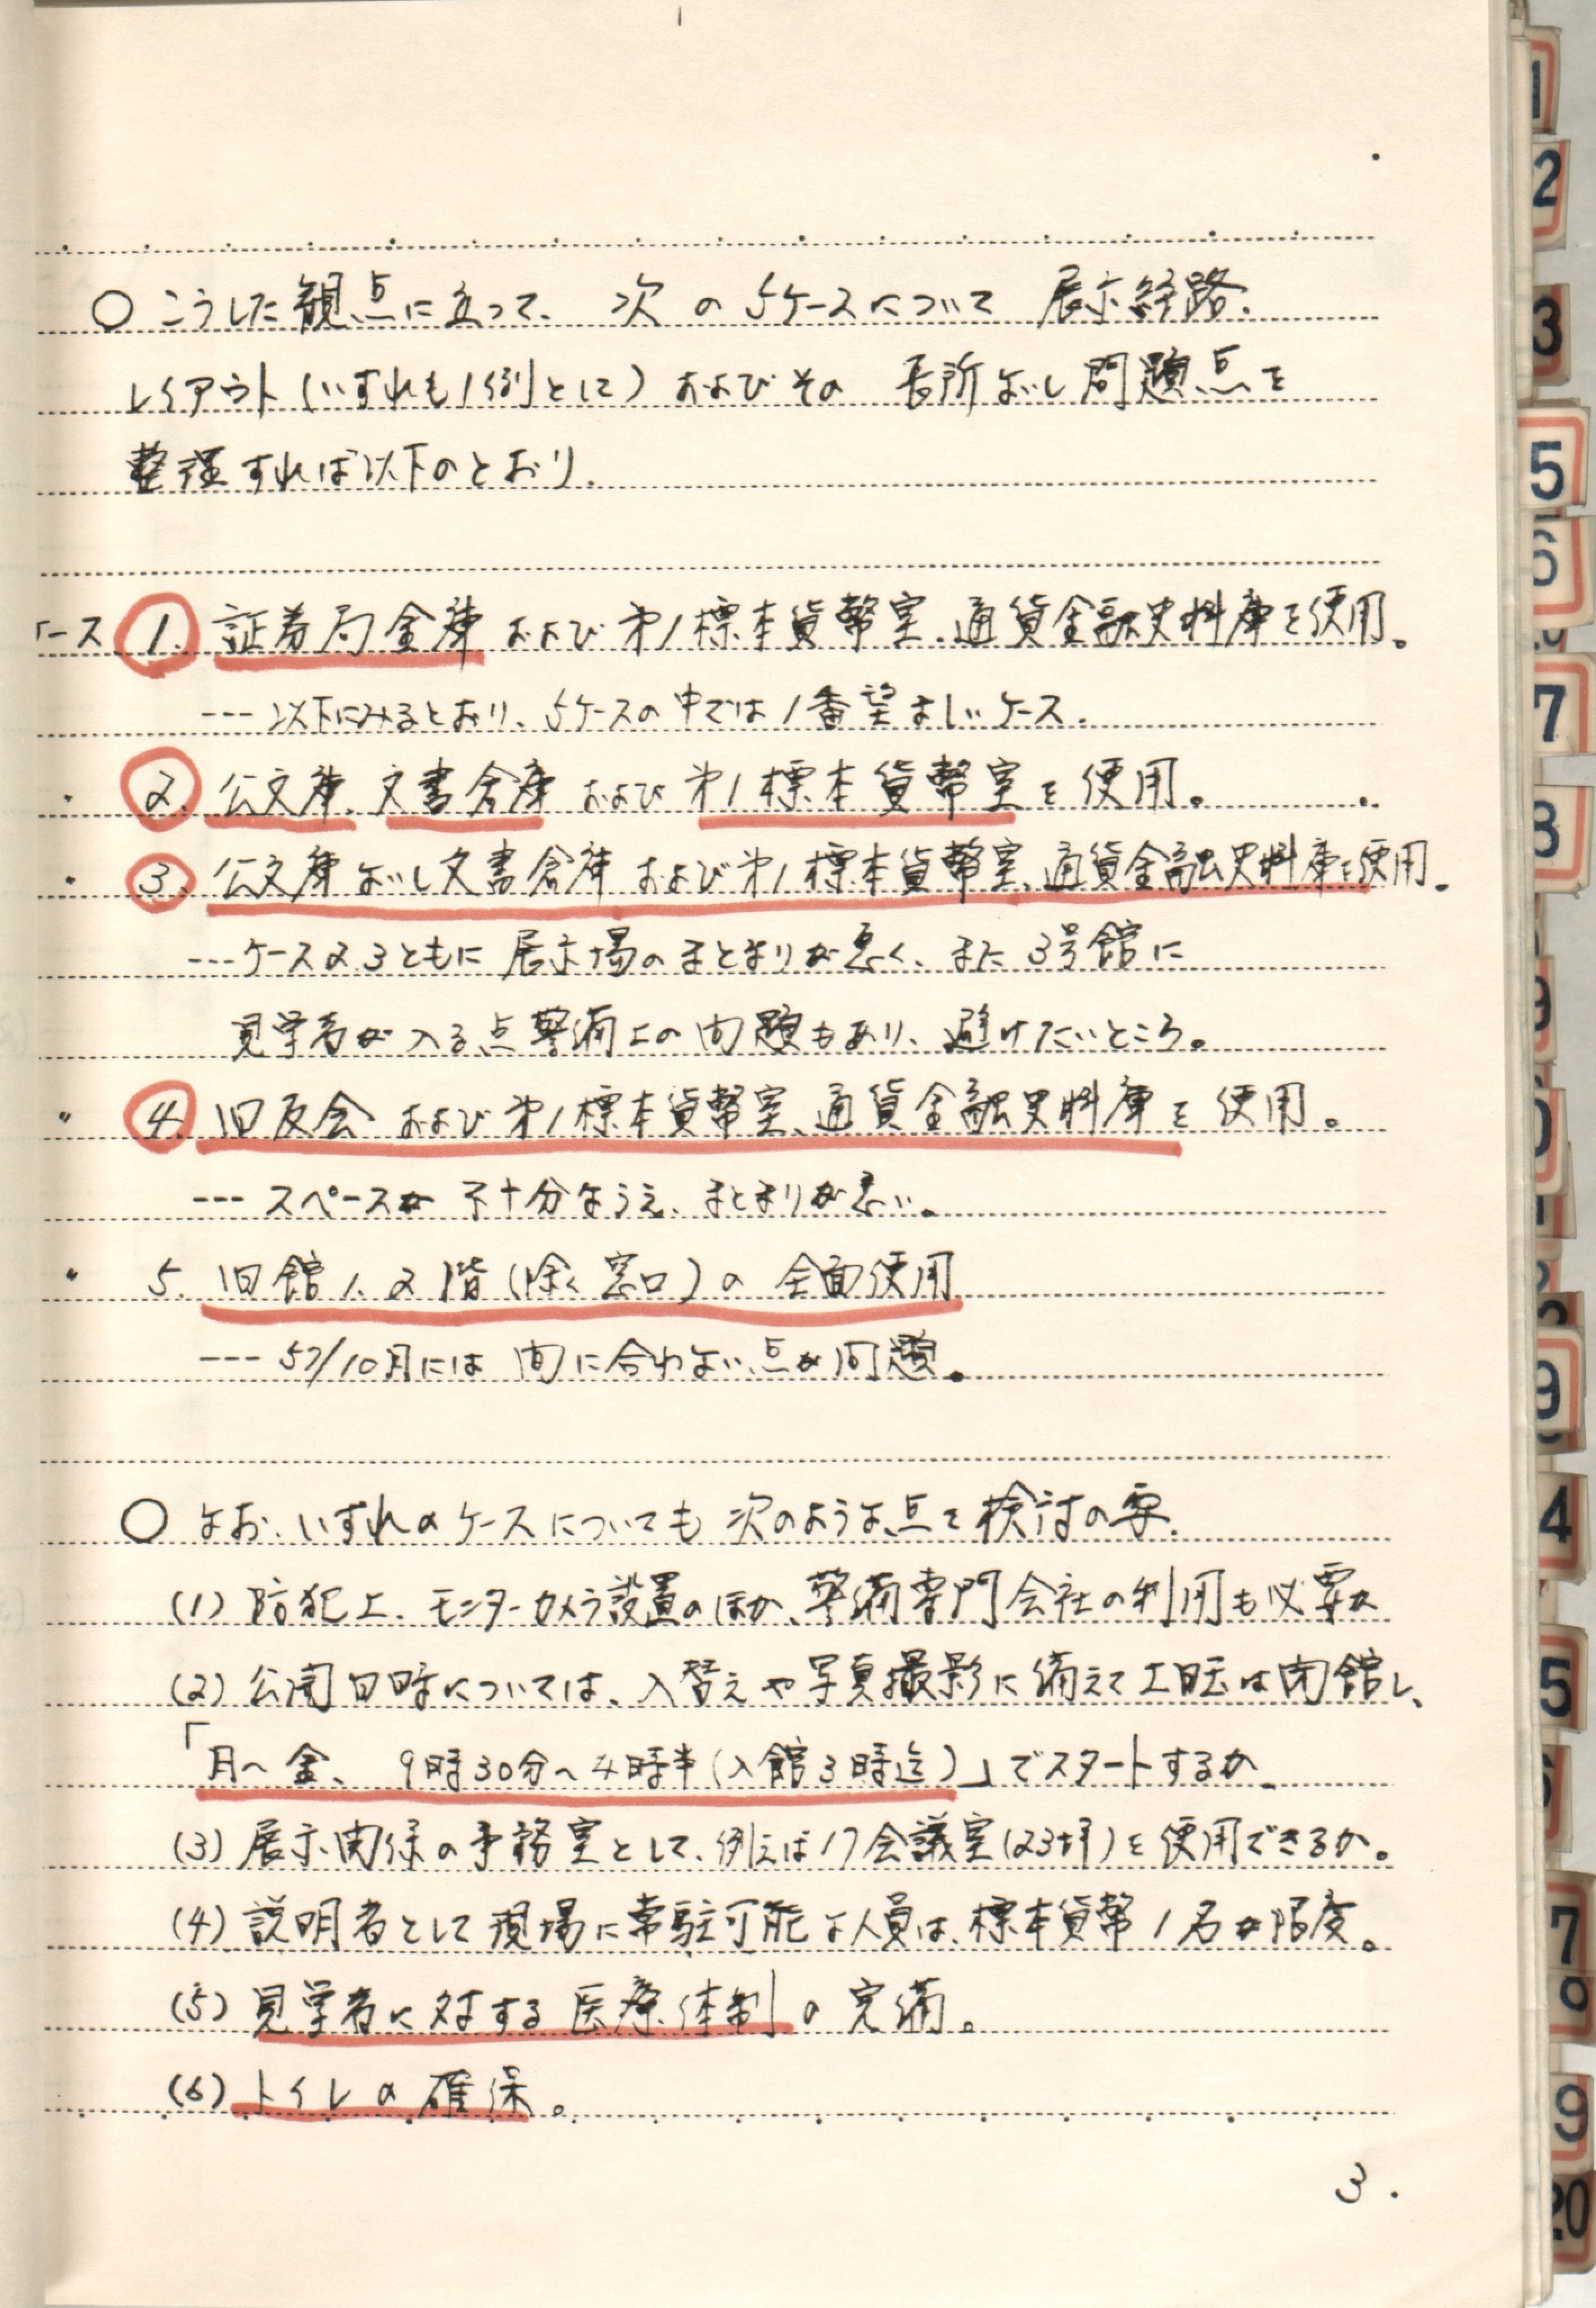 ○ こうした観点に立って、次の5ケースについて展示経路、
レイアウト(いずれも1例として)およびその長所ないし問題点を
整理すれば以下のとおり。
ース 1. 証券局金庫および第1標本貨幣室、通貨金融史料庫を使用。
--- 以下にみるとおり、5ケースの中では1番望ましいケース。
〃 2. 公文庫、文書倉庫および第1標本貨幣室を使用。
〃 3. 公文庫ないし文書倉庫および第1標本貨幣室、通貨金融史料庫を使用。
--- ケース2.3ともに展示場のまとまりが悪く、また3号館に
見学者が入る点警備上の問題もあり、避けたいところ。
〃 4. 旧友会および第1標本貨幣室、通貨金融史料庫を使用。
--- スペースが不十分なうえ、まとまりが悪い。
〃 5. 旧館1、2階(除く窓口)の全面使用
--- 57/10月には間に合わない点が問題。
○ なお、いずれのケースについても次のような点を検討の要。
(1) 防犯上、モニターカメラ設置のほか、警備専門会社の利用も必要か
(2) 公開日時については、入替えや写真撮影に備えて土日は閉館し、
「月〜金、9時30分〜4時半(入館3時迄)」でスタートするか、
(3) 展示関係の事務室として、例えば17会議室(23坪)を使用できるか。
(4) 説明者として現場に常駐可能な人員は、標本貨幣1名が限度。
(5) 見学者に対する医療体制の完備。
(6) トイレの確保。
3.
1
2
3
5
6
7
8
9
4
5
7
9
20